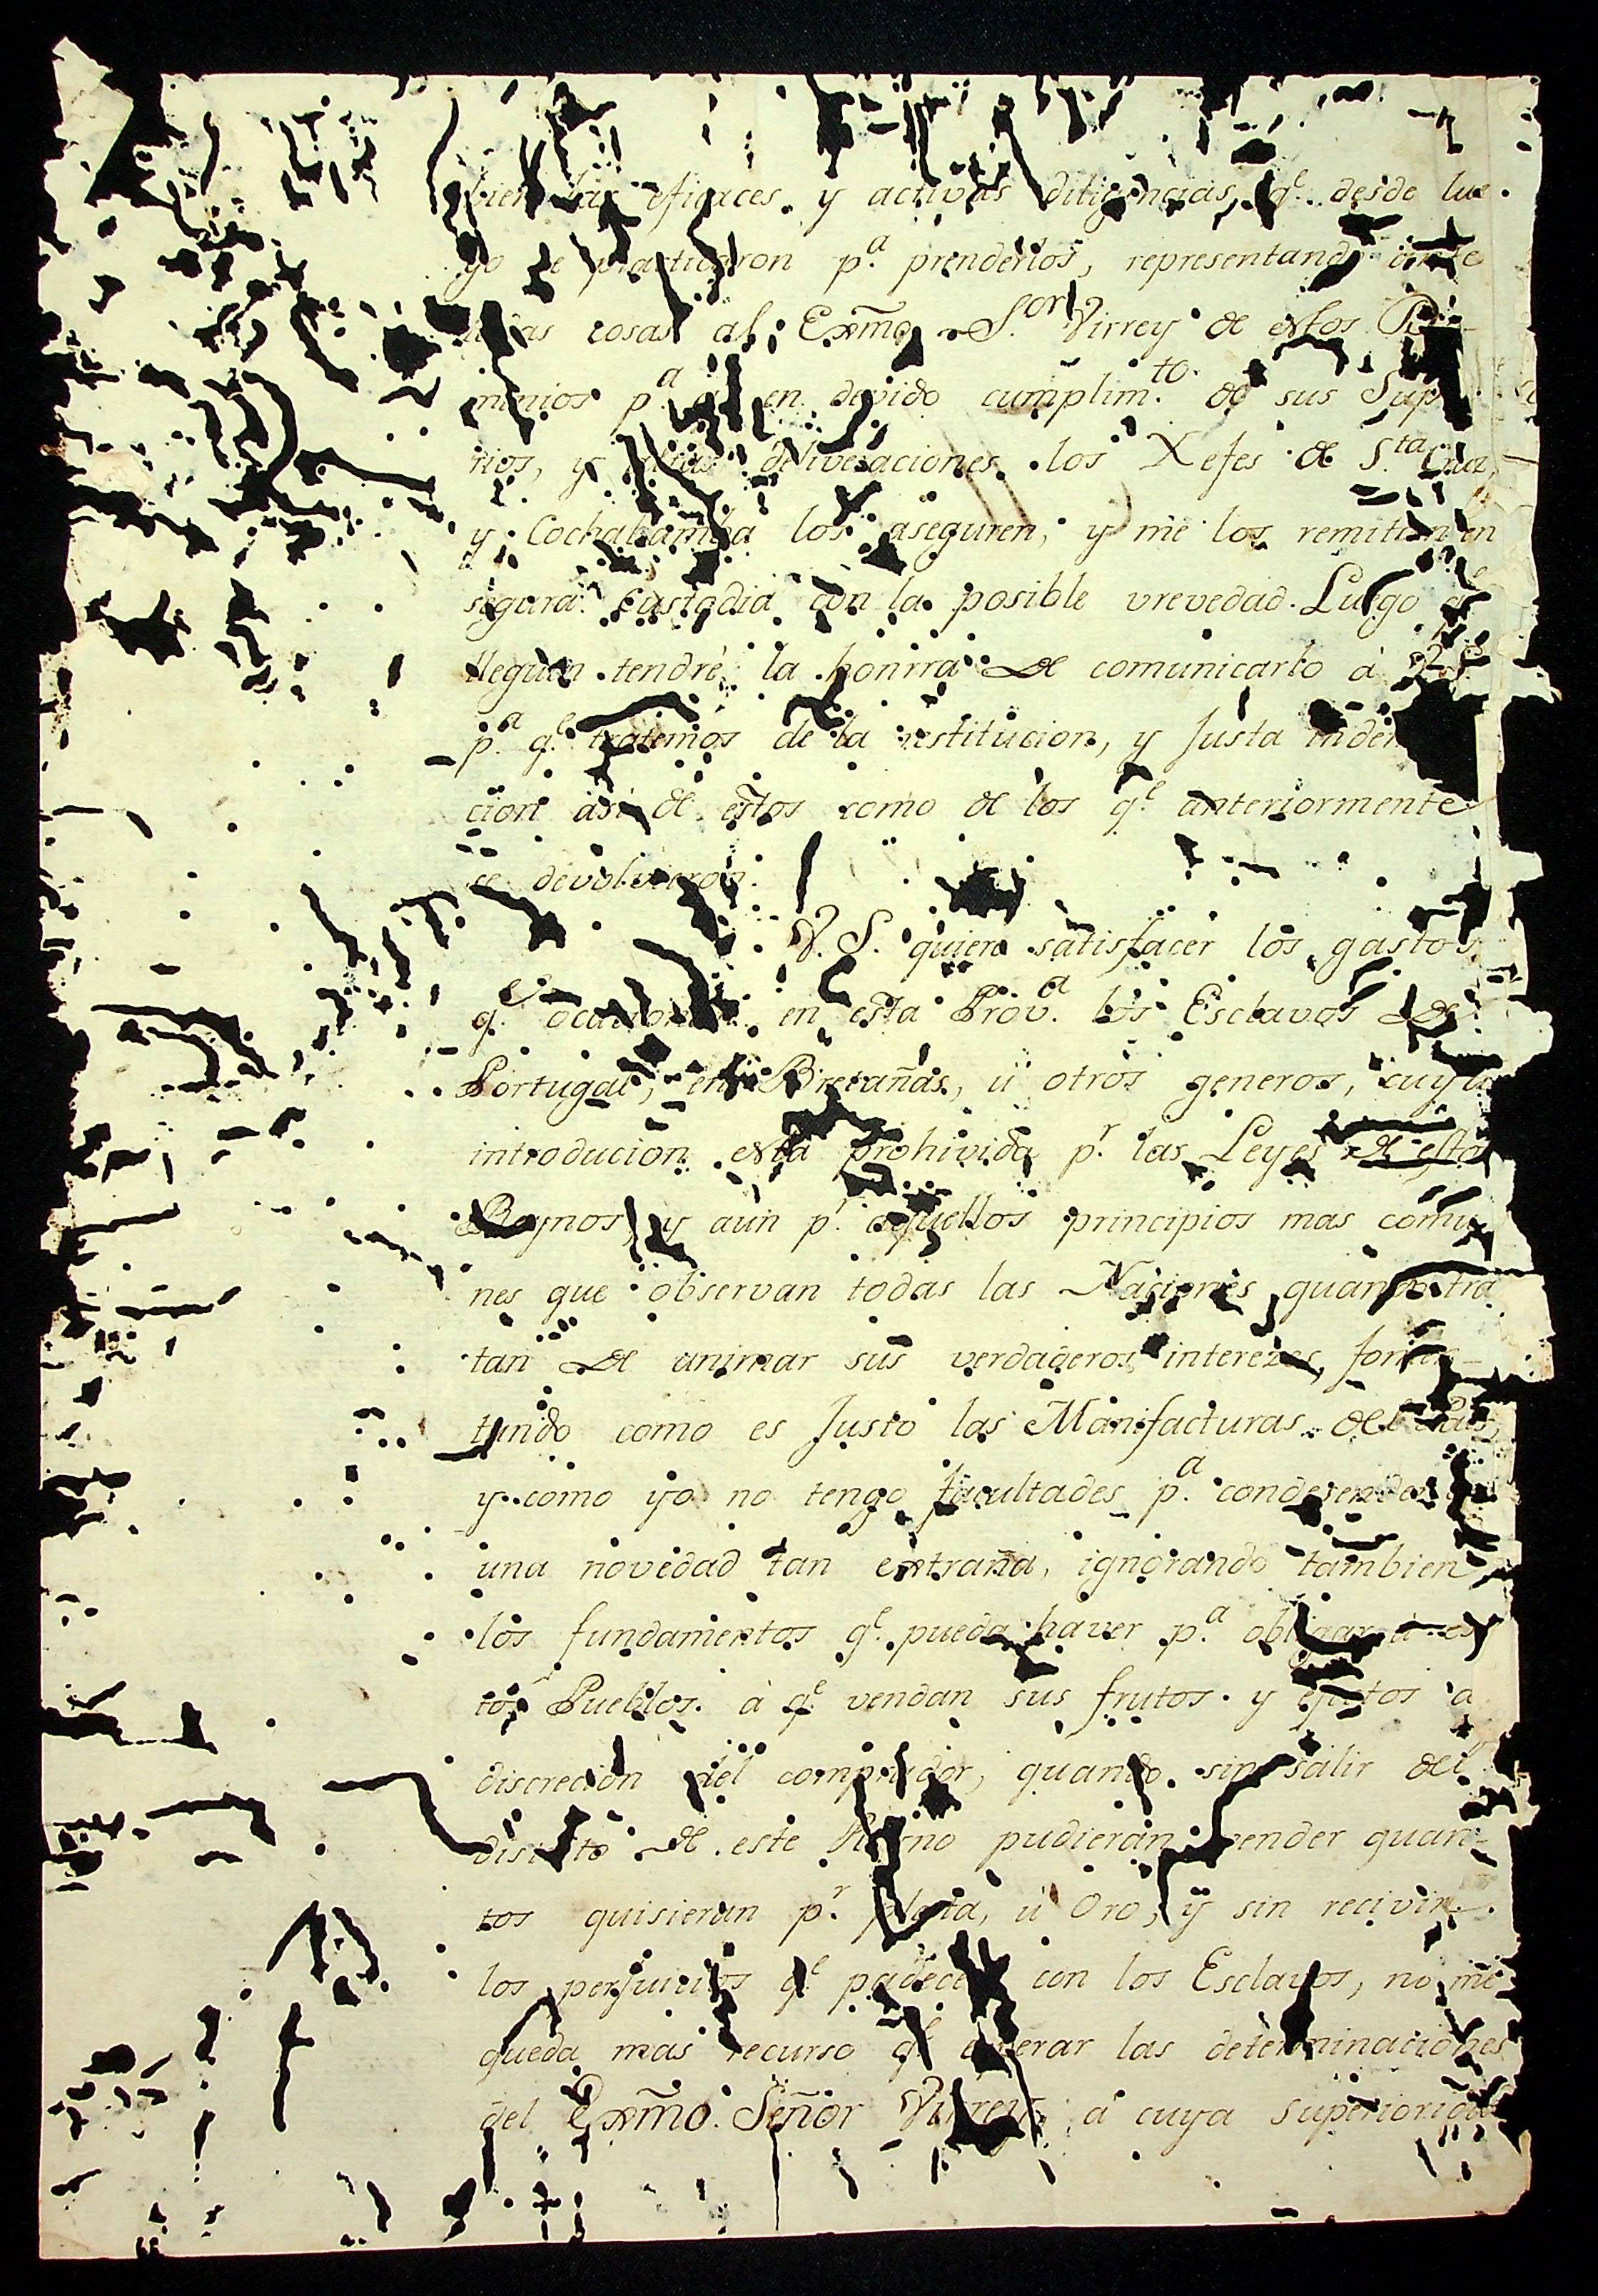 eficaces y activas diligencias, q.e desde lue-
go se practicaron p.a prenderlos, representando
cosas al Exm̃o S.or Virrey de estos
minios p.a en devido cumplim.to de sus
rios, y deliveraciones los Xefes de S.ta Cruz,
y Cochabamba los aseguren, y me los remitan en
segura custodia con la posible vrevedad. Luego q.e
lleguen tendrè la honrra de comunicarlo à
p.a q.e tratemos de la restitucion, y Justa
cion asi de estos como de los q.e anteriormente
se devolvieron.
V. S. quiere satisfacer los gastos,
q.e en esta Prov.a los Esclavos de
Portugal, en Bretañas, ù otros generos, cuya
introducion està prohivida p.r las Leyes de estos
Reynos, y aun p.r aquellos principios mas comu-
nes que observan todas las Naciones quando tra
tan de animar sus verdaderos interezes, fomen-
tando como es Justo las Manifacturas del Pais,
y como yo no tengo facultades p.a condesender
una novedad tan extraña, ignorando tambien
los fundamentos q.e pueda haver p.a obligar a es
tos Pueblos à q.e vendan sus frutos y efectos a
discrecion del comprador, quando sin salir del
distrito de este Reyno pudieran vender quan-
tos quisieran p.r plata, ù Oro, y sin recivir
los perjuicios q.e padecen con los Esclavos, no me
queda mas recurso q.e esperar las determinaciones
del Exm̃o. Señor Virrey, à cuya superioridad